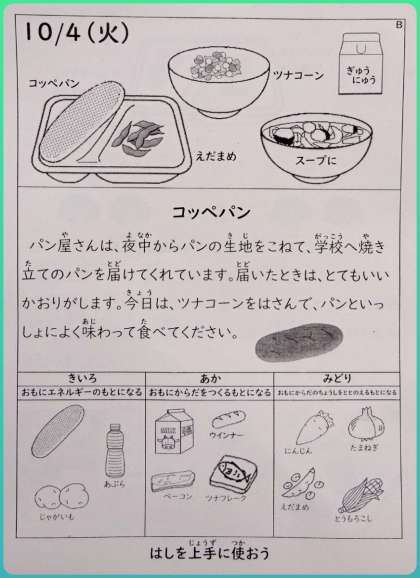 10/4(火)
B
コッペパン
ツナコーン
ぎゅう
にゅう
えだまめ
スープに
コッペパン
パン屋さんは、夜中からパンの生地をこねて、学校へ焼き
立てのパンを届けてくれています。届いたときは、とてもいい
かおりがします。今日は、ツナコーンをはさんで、パンといっ
しょによく味わって食べてください。
きいろ
あか
みどり
おもにエネルギーのもとになる
おもにからだをつくるもとになる
おもにからだのちょうしをととのえるもとになる
あぶら
じゃがいも
ウインナー
ベーコン
ツナフレーク
にんじん
たまねぎ
えだまめ
とうもろこし
はしを上手に使おう